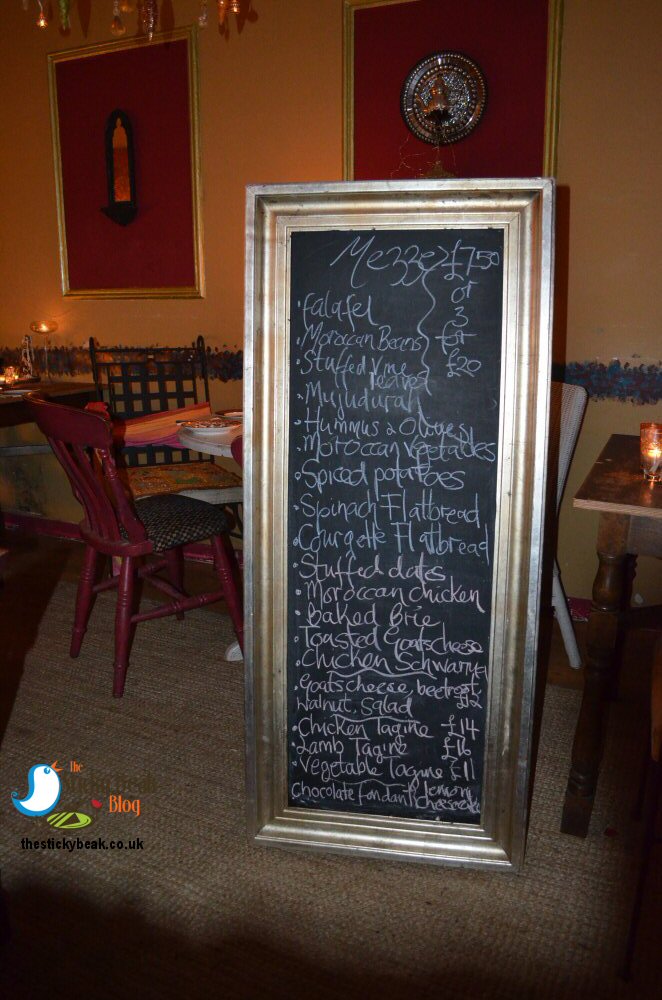 Mezze £7.50
or
3
for
£20
• falafel
• Moroccan Beans
• Stuffed Vine
leaves
• Mujudurah
• Hummus & Olives
• Moroccan Vegetables
• Spiced potatoes
• Spinach Flatbread
• Courgette Flatbread
• Stuffed dates
• Moroccan chicken
• Baked Brie
• Toasted Goatscheese
• Chicken Schwarma
• Goatscheese, beetroot, £12
walnut, salad
• Chicken Tagine £14
• Lamb Tagine £16
• Vegetable Tagine £11
Chocolate fondant lemon
cheesecake
The
Blog
thestickybeak.co.uk